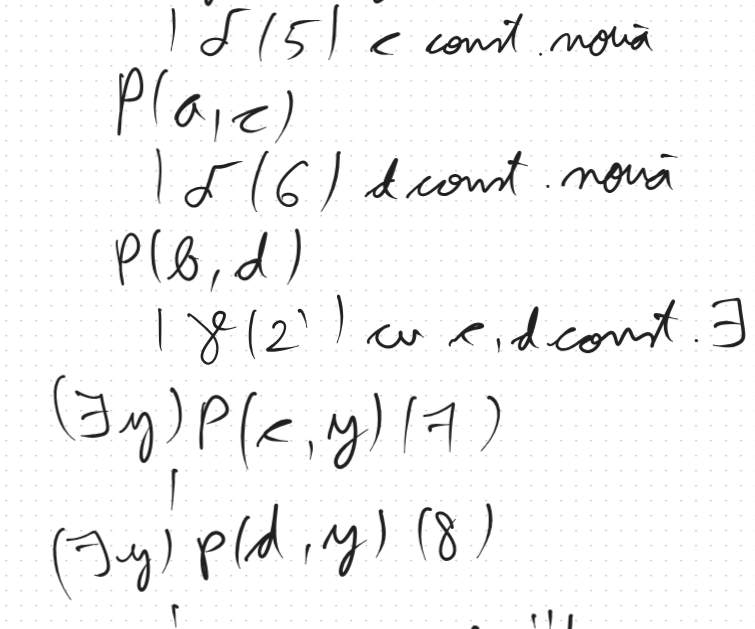 | δ(5) c const. nouă
P(a,c)
| δ(6) d const. nouă
P(b,d)
| γ(2') cu c,d const. ∃
(∃y)P(c,y)(7)
|
(∃y)P(d,y)(8)
|